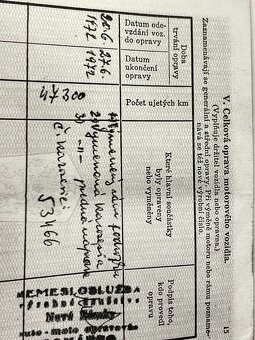 V. Celková oprava motorového vozidla.
15
(Vyplňuje držitel vozidla nebo opravna.)
Zaznamenávají se generální a střední opravy. Při výměně motoru nebo rámu pozname-
nává se též nové výrobní číslo.
Doba
trvání opravy
Datum ode-
vzdání voz.
do opravy
Datum
ukončení
opravy
Počet ujetých km
Které hlavní součástky
byly opraveny
nebo vyměněny
Podpis toho,
kdo provedl
opravu
20.6.
1972
27.6.
1972
47300
1)
2) Vymenena karoseria
3) -"-
č. karoserie
53466
REMESLOSLUŽBA
Nové Zámky
auto-moto opravovňa